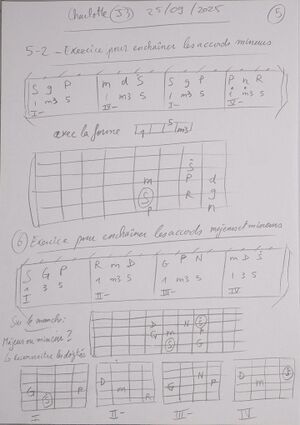 Charlotte (53) 25/09/2025 (5)
5-2 - Exercice pour enchaîner les accords mineurs
S g P | m d S | S g P | P n R
1 m3 5 | 1 m3 5 | 1 m3 5 | 1 m3 5
I- IV- I- IV-
avec la forme 1 5 m3
S
m P d
S R g
P n
(6) Exercice pour enchaîner les accords majeurs et mineurs
S G P | R m D | G P N | m D S
1 3 5 | 1 m3 5 | 1 m3 5 | 1 3 5
I II- III- IV
Sur le manche:
Majeur ou mineur?
D N S
G m P
S R G
G P
S
D
m
R
N
G P
D S
m
I II- III- IV